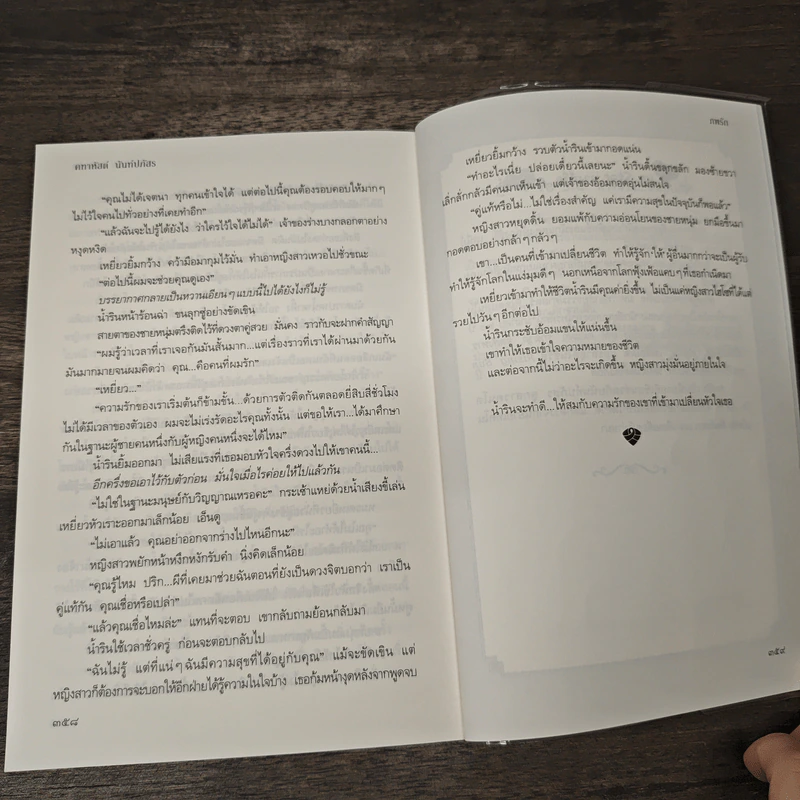 คทาหัสต์ นันท์ปภัสร
“คุณไม่ได้เจตนา ทุกคนเข้าใจได้ แต่ต่อไปนี้คุณต้องรอบคอบให้มากๆ
ไม่ไว้ใจคนไปทั่วอย่างที่เคยทำอีก”
“แล้วฉันจะไปรู้ได้ยังไง ว่าใครไว้ใจได้ไม่ได้” เจ้าของร่างบางกลอกตาอย่าง
หงุดหงิด
เหยี่ยวยิ้มกว้าง คว้ามือมากุมไว้มั่น ทำเอาหญิงสาวเหวอไปชั่วขณะ
“ต่อไปนี้ผมจะช่วยคุณดูเอง”
บรรยากาศกลายเป็นหวานเอียนๆ แบบนี้ไปได้ยังไงก็ไม่รู้
น้ำรินหน้าร้อนฉ่า ขนลุกซู่อย่างขัดเขิน
สายตาของชายหนุ่มตรึงติดไว้ที่ดวงตาคู่สวย มั่นคง ราวกับจะฝากคำสัญญา
“ผมรู้ว่าเวลาที่เราเจอกันมันสั้นมาก...แต่เรื่องราวที่เราได้ผ่านมาด้วยกัน
มันมากมายจนผมคิดว่า คุณ...คือคนที่ผมรัก”
“เหยี่ยว...”
“ความรักของเราเริ่มต้นก็ข้ามขั้น...ด้วยการตัวติดกันตลอดยี่สิบสี่ชั่วโมง
ไม่ได้มีเวลาของตัวเอง ผมจะไม่เร่งรัดอะไรคุณทั้งนั้น แต่ขอให้เรา...ได้มาศึกษา
กันในฐานะผู้ชายคนหนึ่งกับผู้หญิงคนหนึ่งจะได้ไหม”
น้ำรินยิ้มออกมา ไม่เสียแรงที่เธอมอบหัวใจครึ่งดวงไปให้เขาคนนี้...
อีกครึ่งขอเอาไว้กับตัวก่อน มั่นใจเมื่อไรค่อยให้ไปแล้วกัน
“ไม่ใช่ในฐานะมนุษย์กับวิญญาณเหรอคะ” กระเซ้าแหย่ด้วยน้ำเสียงขี้เล่น
เหยี่ยวหัวเราะออกมาเล็กน้อย เอ็นดู
“ไม่เอาแล้ว คุณอย่าออกจากร่างไปไหนอีกนะ”
หญิงสาวพยักหน้าหงึกหงักรับคำ นิ่งคิดเล็กน้อย
“คุณรู้ไหม ปริก...ผีที่เคยมาช่วยฉันตอนที่ยังเป็นดวงจิตบอกว่า เราเป็น
คู่แท้กัน คุณเชื่อหรือเปล่า”
“แล้วคุณเชื่อไหมล่ะ” แทนที่จะตอบ เขากลับถามย้อนกลับมา
น้ำรินใช้เวลาชั่วครู่ ก่อนจะตอบกลับไป
“ฉันไม่รู้ แต่ที่แน่ๆ ฉันมีความสุขที่ได้อยู่กับคุณ” แม้จะขัดเขิน แต่
หญิงสาวก็ต้องการจะบอกให้อีกฝ่ายได้รู้ความในใจบ้าง เธอก้มหน้างุดหลังจากพูดจบ
๓๕๘
ภพรัก
เหยี่ยวยิ้มกว้าง รวบตัวน้ำรินเข้ามากอดแน่น
“ทำอะไรเนี่ย ปล่อยเดี๋ยวนี้เลยนะ” น้ำรินดิ้นขลุกขลัก มองซ้ายขวา
เลิ่กลั่กกลัวมีคนมาเห็นเข้า แต่เจ้าของอ้อมกอดอุ่นไม่สนใจ
“คู่แท้หรือไม่...ไม่ใช่เรื่องสำคัญ แค่เรามีความสุขในปัจจุบันก็พอแล้ว”
หญิงสาวหยุดดิ้น ยอมแพ้กับความอ่อนโยนของชายหนุ่ม ยกมือขึ้นมา
กอดตอบอย่างกล้าๆ กลัวๆ
เขา...เป็นคนที่เข้ามาเปลี่ยนชีวิต ทำให้รู้จัก ‘ให้’ ผู้อื่นมากกว่าจะเป็นผู้รับ
ทำให้รู้จักโลกในแง่มุมดีๆ นอกเหนือจากโลกฟุ้งเฟ้อแคบๆ ที่เธอกำเนิดมา
เหยี่ยวเข้ามาทำให้ชีวิตน้ำรินมีคุณค่ายิ่งขึ้น ไม่เป็นแค่หญิงสาวไฮโซที่ได้แต่
รวยไปวันๆ อีกต่อไป
น้ำรินกระชับอ้อมแขนให้แน่นขึ้น
เขาทำให้เธอเข้าใจความหมายของชีวิต
และต่อจากนี้ไม่ว่าอะไรจะเกิดขึ้น หญิงสาวมุ่งมั่นอยู่ภายในใจ
น้ำรินจะทำดี...ให้สมกับความรักของเขาที่เข้ามาเปลี่ยนหัวใจเธอ
๓๕๙